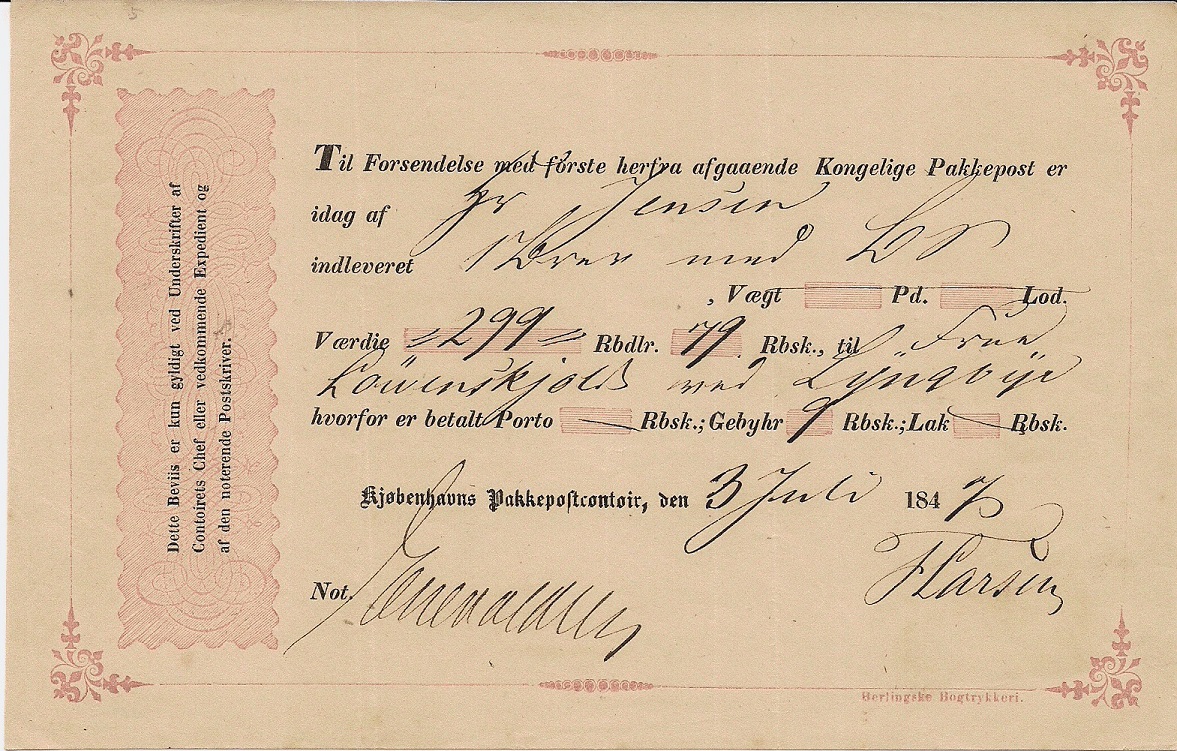 Dette Beviis er kun gyldigt ved Underskrifter af
Contoirets Chef eller vedkommende Expedient og
af den noterende Postskriver.
Til Forsendelse med förste herfra afgaaende Kongelige Pakkepost er
idag af Hr Jensen
indleveret 1 Brev med
, Vægt Pd. Lod.
Værdie 299 Rbdlr. 79 Rbsk., til Frue
Löwenskjold ved Lyngbye
hvorfor er betalt Porto — Rbsk.; Gebyhr 9 Rbsk.; Lak — Rbsk.
Kjøbenhavns Pakkepostcontoir, den 3 Juli 1847
Larsen
Not.
Berlingske Bogtrykkeri.